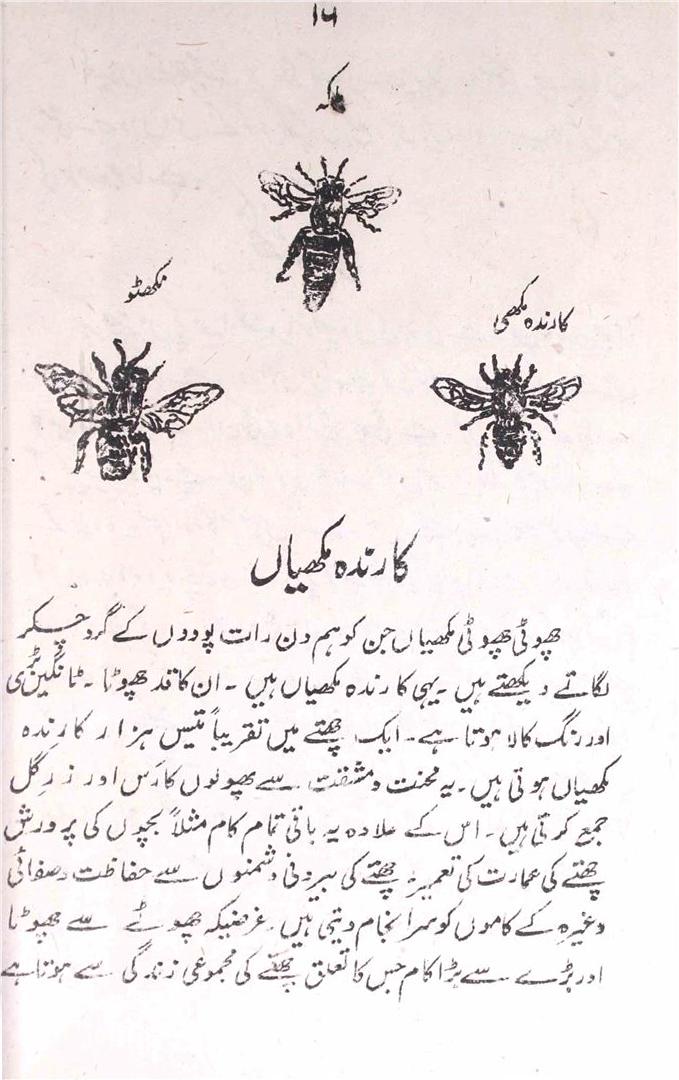 ۱۶
ملکہ
نکھٹو
کارندہ مکھی
کارندہ مکھیاں
چھوٹی چھوٹی مکھیاں جن کو ہم دن رات پودوں کے گرد چکر
لگاتے دیکھتے ہیں ۔ یہی کارندہ مکھیاں ہیں ۔ ان کا قد چھوٹا ۔ ٹانگیں بڑی
اور رنگ کالا ہوتا ہے ۔ ایک چھتے میں تقریباً تیس ہزار کارندہ
مکھیاں ہوتی ہیں ۔ یہ محنت و مشقت سے پھولوں کا رَس اور زرِ گل
جمع کرتی ہیں ۔ اس کے علاوہ یہ باقی تمام کام مثلاً بچوں کی پرورش
چھتے کی عمارت کی تعمیر، چھتے کی بیرونی دشمنوں سے حفاظت و صفائی
وغیرہ کے کاموں کو سرانجام دیتی ہیں ۔ غرضیکہ چھوٹے سے چھوٹا
اور بڑے سے بڑا کام جس کا تعلق چھتے کی مجموعی زندگی سے ہوتا ہے